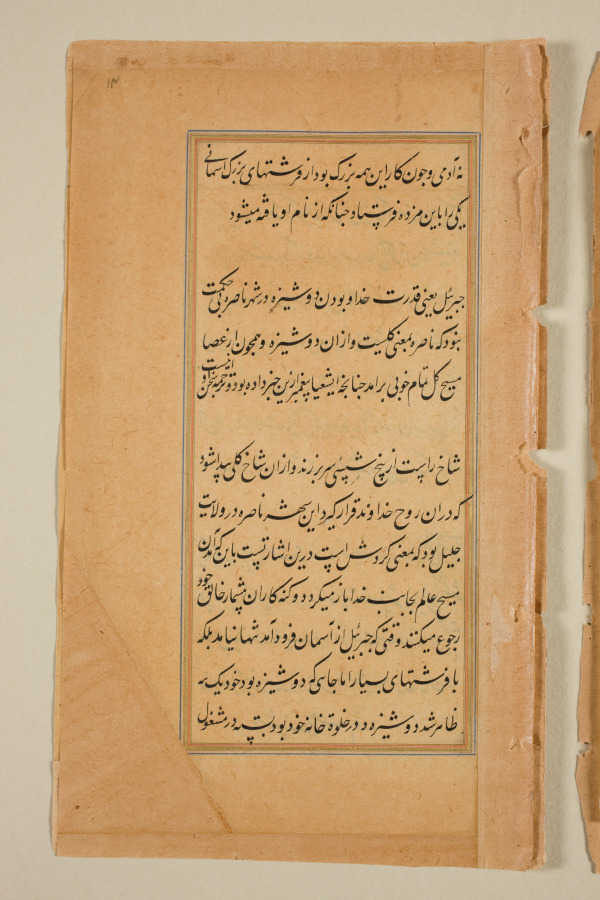 ۱۳
نه آدمی و چون کار این همه بزرگ بود از فرشتهای بزرگ آسمانی
یکی را باین مژده فرستاد چنانکه از نام او یافته میشود
جبرئیل یعنی قدرت خدا و بودن دوشیزه در شهر ناصره بی حکمت
نبود که ناصره بمعنی کلیست و ازان دوشیزه و همچون از عصا
مسیح کل تمام خوبی برامد چنانچه ایشعیا پیغمبر ازین خبر داده بود و ترجمه سخن او اینست
شاخ راست از بیخ یسی سر برزند و ازان شاخ کلی پیدا شود
که دران روح خداوند قرار گیرد این شهر ناصره در ولایت
جلیل بود که بمعنی گردش است درین اشارتست باین که آمدن
مسیح عالم بجانب خدا باز میکردد و گنه کاران بیشمار خالق خود
رجوع میکنند وقتی که جبرئیل از آسمان فرود آمد تنها نیامد بلکه
با فرشتهای بسیار اما جای که دوشیزه بود خود یک به
ظاهر شد دوشیزه در خلوة خانه خود بود بسته در مشغول